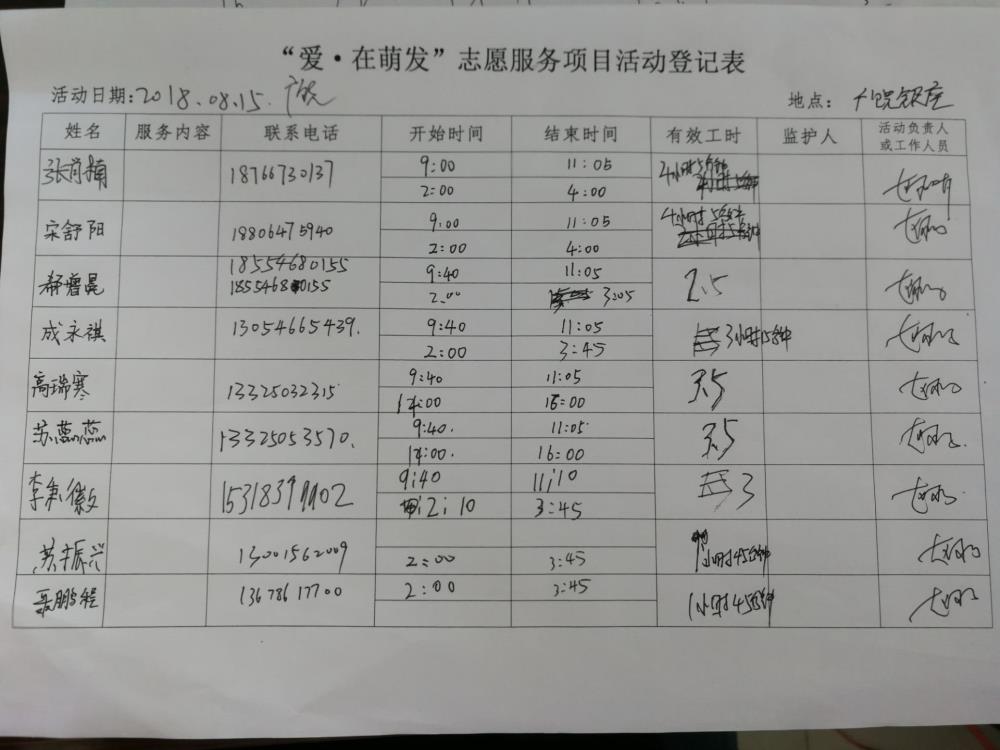 “爱·在萌发”志愿服务项目活动登记表
活动日期:2018.08.15.
地点: 银座
姓名 服务内容 联系电话 开始时间 结束时间 有效工时 监护人 活动负责人或工作人员
张肖楠 18766730137 9:00 11:05 4小时5分钟
2:00 4:00
宋舒阳 18806475940 9:00 11:05 4小时5分钟
2:00 4:00
18554680155 9:40 11:05 2.5
18554680155 2:00 3:05
成永祺 13054665439. 9:40 11:05 3小时15分钟
2:00 3:45
高瑞寒 13325032315 9:40 11:05 3.5
14:00 16:00
苏蕊 13325053570. 9:40. 11:05. 3.5
14:00. 16:00
李秉徽 15318399902 9:40 11:10 3
2:10 3:45
苏振兴 13001562009 2:00 3:45 1小时45分钟
聂鹏程 13678617700 2:00 3:45 1小时45分钟